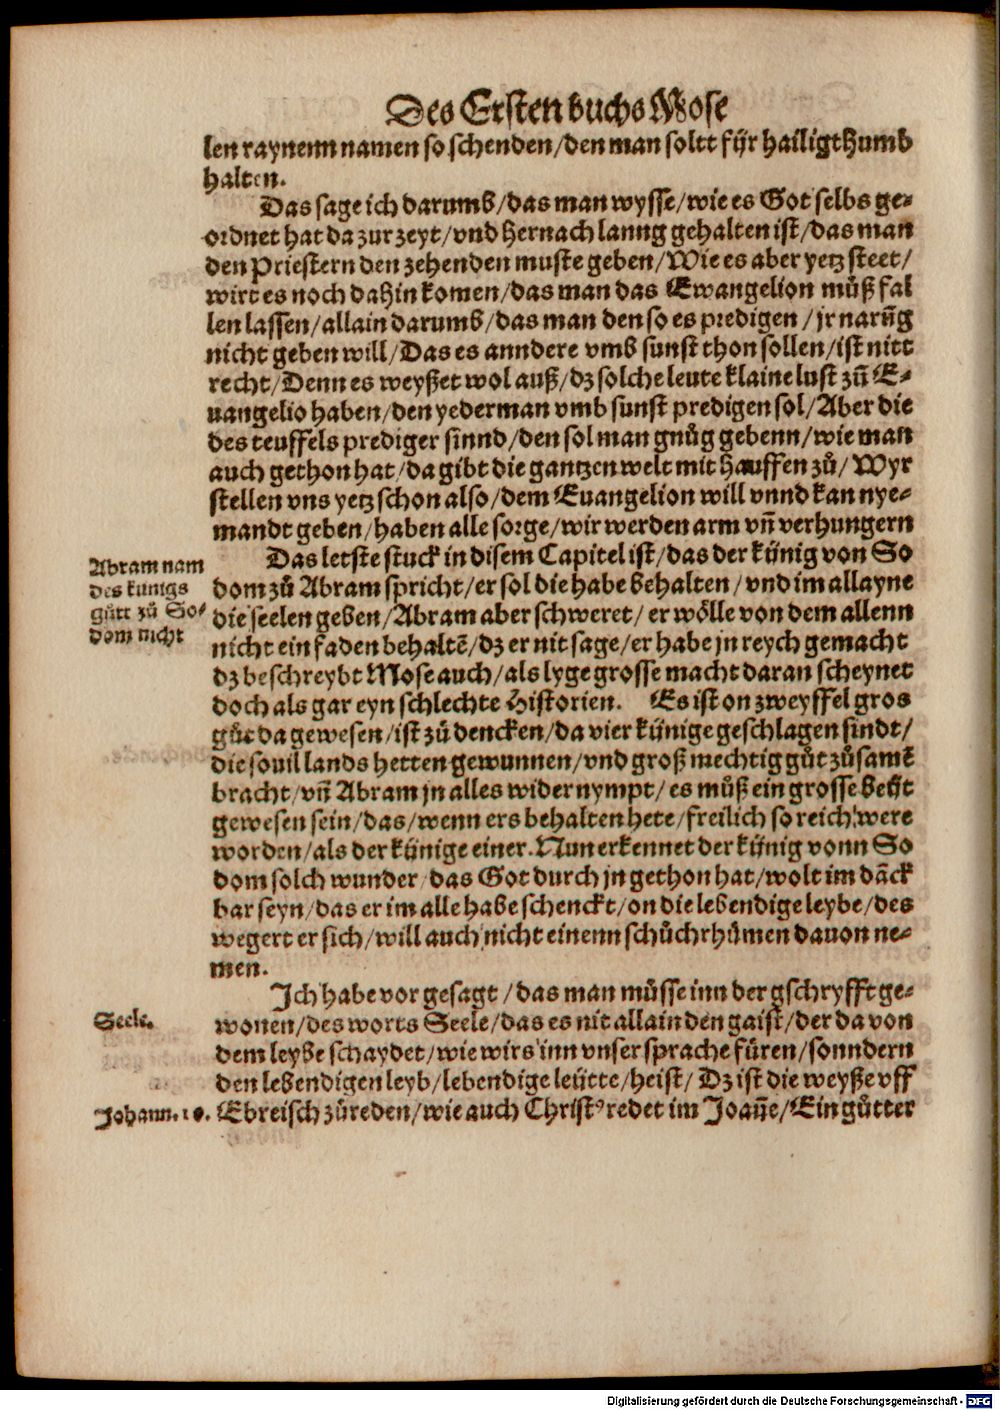 Des Ersten buchs Mose
len raynenn namen so schenden/den man soltt für hailigthumb
halten.
Das sage ich darumb/das man wysse/wie es Got selbs ge-
ordnet hat da zur zeyt/vnd hernach lanng gehalten ist/das man
den Priestern den zehenden muste geben/Wie es aber yetz steet/
wirt es noch dahin komen/das man das Ewangelion müß fal
len lassen/allain darumb/das man den so es predigen/jr narūg
nicht geben will/Das es anndere vmb sunst thon sollen/ist nitt
recht/Denn es weyßet wol auß/dz solche leute klaine lust zů E-
uangelio haben/den yederman vmb sunst predigen sol/Aber die
des teuffels prediger sinnd/den sol man gnůg gebenn/wie man
auch gethon hat/da gibt die gantzen welt mit hauffen zů/Wyr
stellen vns yetz schon also/dem Euangelion will vnnd kan nye-
mandt geben/haben alle sorge/wir werden arm vñ verhungern
Das letste stuck in disem Capitel ist/das der künig von So
dom zů Abram spricht/er sol die habe behalten/vnd im allayne
die seelen geben/Abram aber schweret/er wölle von dem allenn
nicht ein faden behaltē/dz er nit sage/er habe jn reych gemacht
dz beschreybt Mose auch/als lyge grosse macht daran scheynet
doch als gar eyn schlechte Historien. Es ist on zweyffel gros
gůt da gewesen/ist zů dencken/da vier künige geschlagen sindt/
die souil lands hetten gewunnen/vnd groß mechtig gůt zůsamē
bracht/vñ Abram jn alles wider nympt/es můß ein grosse beüt
gewesen sein/das/wenn ers behalten hete/freilich so reich were
worden/als der künige einer. Nun erkennet der künig vonn So
dom solch wunder/das Got durch jn gethon hat/wolt im dāck
bar seyn/das er im alle habe schenckt/on die lebendige leybe/des
wegert er sich/will auch nicht einenn schůchrhümen dauon ne-
men.
Ich habe vor gesagt/das man müsse inn der gschryfft ge-
wonen/des worts Seele/das es nit allain den gaist/der da von
dem leybe schaydet/wie wirs inn vnser sprache füren/sonndern
den lebendigen leyb/lebendige leütte/heist/Dz ist die weyße vff
Ebreisch zůreden/wie auch Christ⁹ redet im Joañe/Ein gůtter
Abram nam
des künigs
gůtt zů So-
dom nicht
Seele.
Johann. 10.
Digitalisierung gefördert durch die Deutsche Forschungsgemeinschaft - DFG